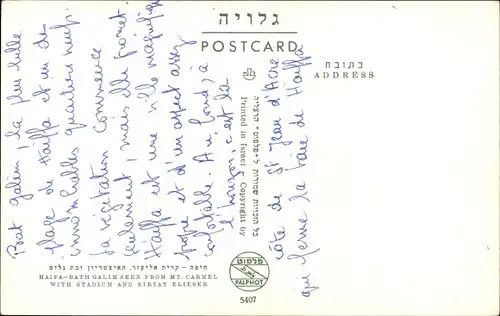 גלויה
POSTCARD
כתובת
ADDRESS
Bat galim, la plus belle
plage de Haïffa et un des
innombrables quartiers neufs.
La végétation commence
seulement, mais elle promet.
Haïffa est une ville magnifique
propre et d'un aspect assez
confortable. Au fond, à
l'horizon, c'est la
côte de St Jean d'Acre
qui ferme la baie de Haïffa
כל הזכויות שמורות ל"פלפוט" הרצליה
Printed in Israel Copyright by
חיפה - קרית אליעזר, האיצטדיון ובת גלים
HAIFA-BATH GALIM SEEN FROM MT. CARMEL
WITH STADIUM AND KIRYAT ELIESER
פלפוט
PALPHOT
5407